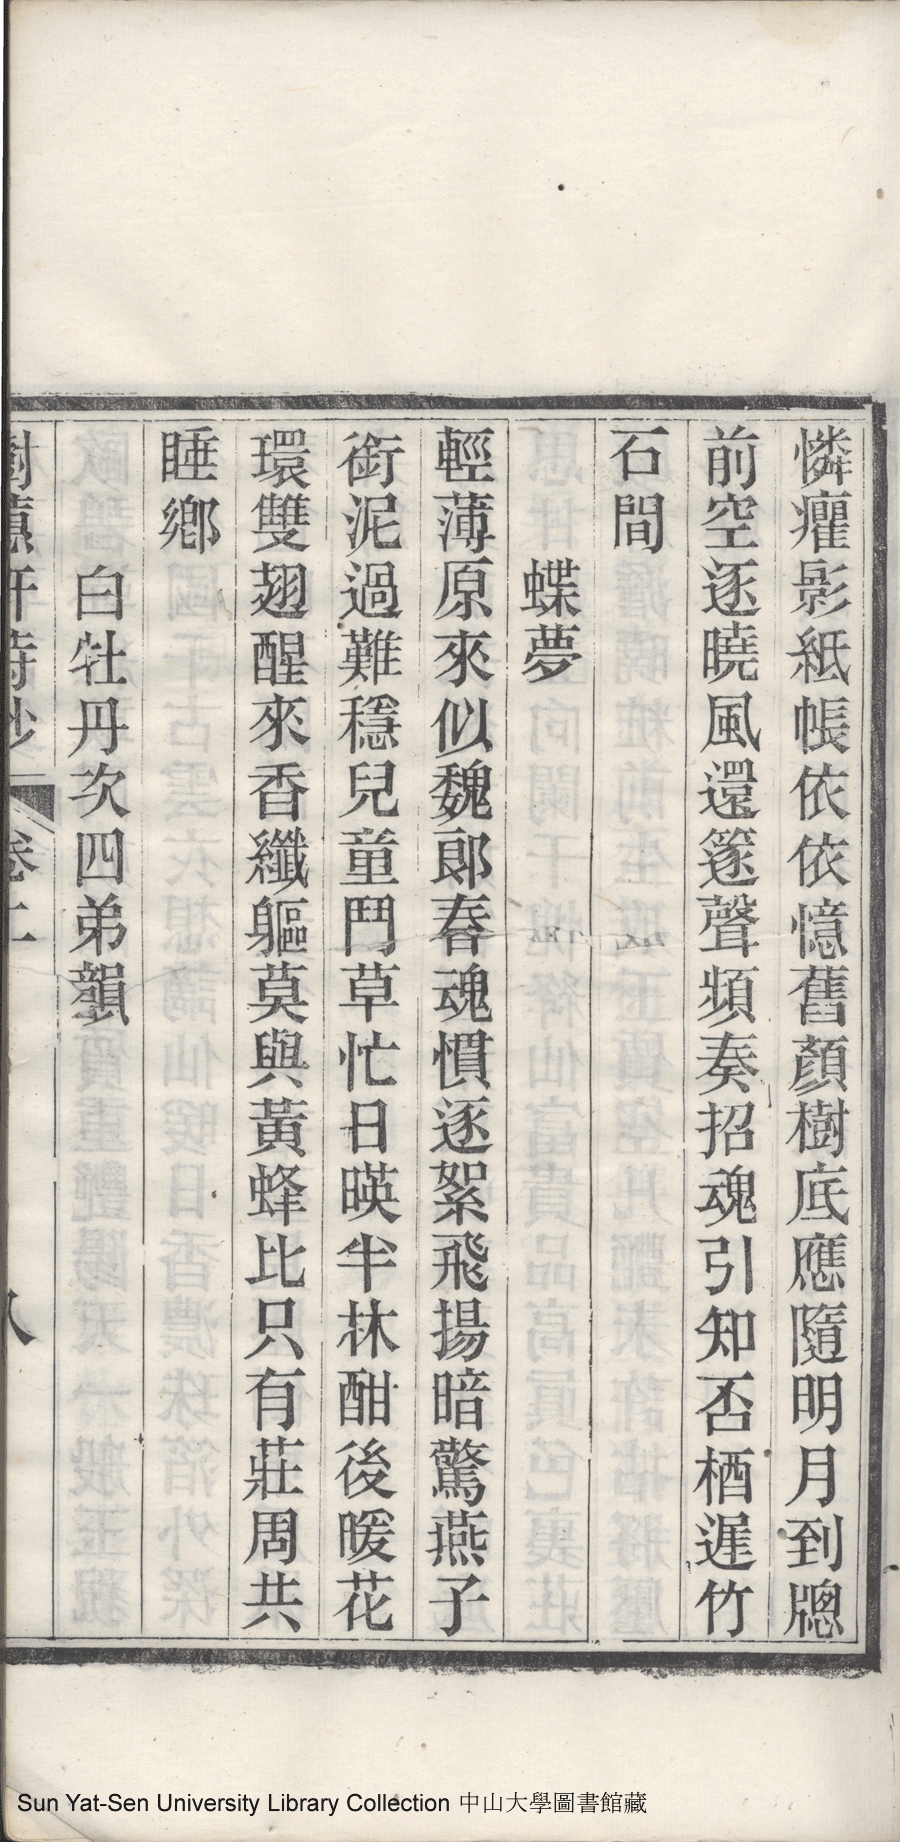 憐癯影紙帳依依憶舊顏樹底應隨明月到牕
前空逐曉風還篴聲頻奏招魂引知否栖遲竹
石間
蝶夢
輕薄原來似魏郎春魂慣逐絮飛揚暗驚燕子
銜泥過難穩兒童鬥草忙日暎半林酣後暖花
環雙翅醒來香纖軀莫與黃蜂比只有莊周共
睡鄉
白牡丹次四弟韻
Sun Yat-Sen University Library Collection 中山大學圖書館藏